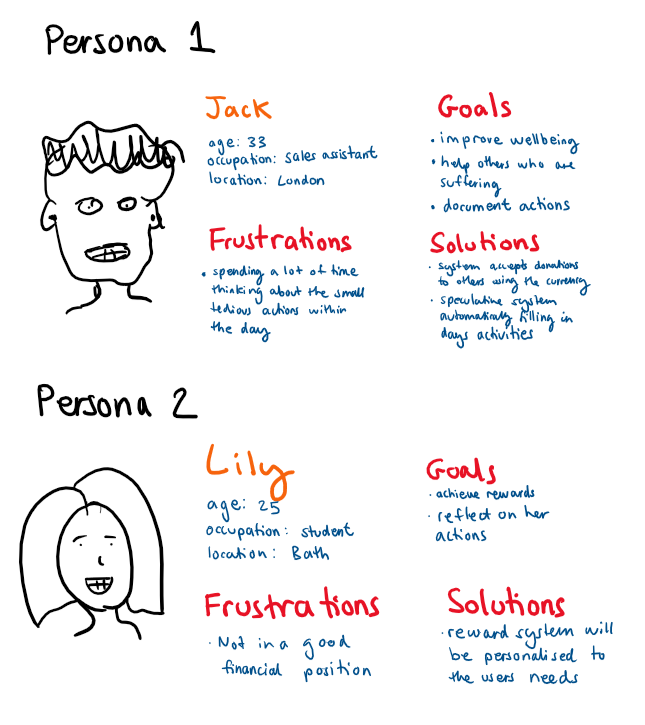 Persona 1
Jack
age: 33
occupation: sales assistant
location: London
Goals
• improve wellbeing
• help others who are
suffering
• document actions
Frustrations
• spending a lot of time
thinking about the small
tedious actions within
the day
Solutions
• system accepts donations
to others using the currency
• speculative system
automatically filling in
days activities
Persona 2
Lily
age: 25
occupation: student
location: Bath
Goals
• achieve rewards
• reflect on her
actions
Frustrations
• Not in a good
financial position
Solutions
• reward system will
be personalised to
the users needs